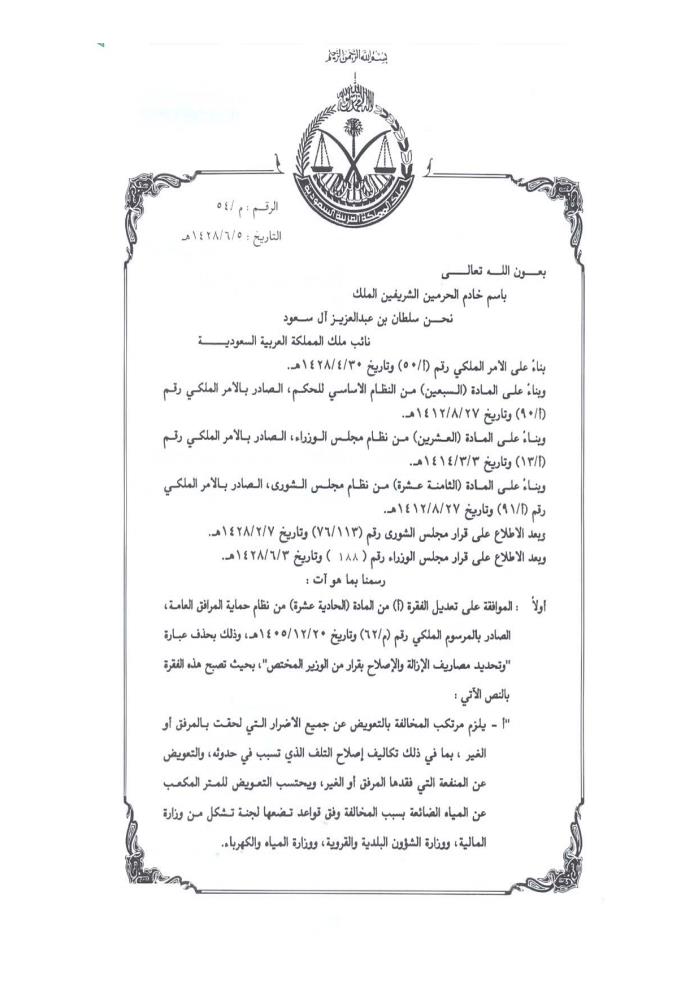 بسم الله الرحمن الرحيم
الرقم : م /٥٤
التاريخ : ١٤٢٨/٦/٥هـ
بعـــون اللـــه تعالـــى
باسم خادم الحرمين الشريفين الملك
نحـــن سلطان بن عبدالعزيز آل سعـــود
نائب ملك المملكة العربية السعوديـــة
بناءً على الأمر الملكي رقم (أ/٥٠) وتاريخ ١٤٢٨/٤/٣٠هـ.
وبناءً علـى المـادة (السـبعين) مـن النظام الأساسي للحكـم، الصـادر بـالأمر الملكـي رقـم
(أ/٩٠) وتاريخ ١٤١٢/٨/٢٧هـ.
وبناءً علـى المـادة (العشـرين) مـن نظـام مجلـس الـوزراء، الصـادر بـالأمر الملكـي رقـم
(أ/١٣) وتاريخ ١٤١٤/٣/٣هـ.
وبنـاءً علـى المـادة (الثامنـة عشـرة) مـن نظـام مجلـس الشورى، الصـادر بـالأمر الملكـي
رقم (أ/٩١) وتاريخ ١٤١٢/٨/٢٧هـ.
وبعد الاطلاع على قرار مجلس الشورى رقم (٧٦/١١٣) وتاريخ ١٤٢٨/٢/٧هـ.
وبعد الاطلاع على قرار مجلس الوزراء رقم ( ١٨٨ ) وتاريخ ١٤٢٨/٦/٣هـ.
رسمنا بما هو آت :
أولاً : الموافقة على تعديل الفقرة (أ) من المادة (الحادية عشرة) من نظام حماية المرافق العامة،
الصادر بالمرسوم الملكي رقم (م/٦٢) وتاريخ ١٤٠٥/١٢/٢٠هـ، وذلك بحذف عبـارة
"وتحديد مصاريف الإزالة والإصلاح بقرار من الوزير المختص"، بحيث تصبح هذه الفقرة
بالنص الآتي :
"أ - يلزم مرتكب المخالفة بالتعويض عن جميع الأضرار التـي لحقت بـالمرفق أو
الغير ، بما في ذلك تكاليف إصلاح التلف الذي تسبب في حدوثه، والتعويض
عن المنفعة التي فقدها المرفق أو الغير، ويحتسب التعـويض للمـتر المكعـب
عن المياه الضائعة بسبب المخالفة وفق قواعد تـضعها لجنة تـشكل مـن وزارة
المالية، ووزارة الشؤون البلدية والقروية، ووزارة المياه والكهرباء.